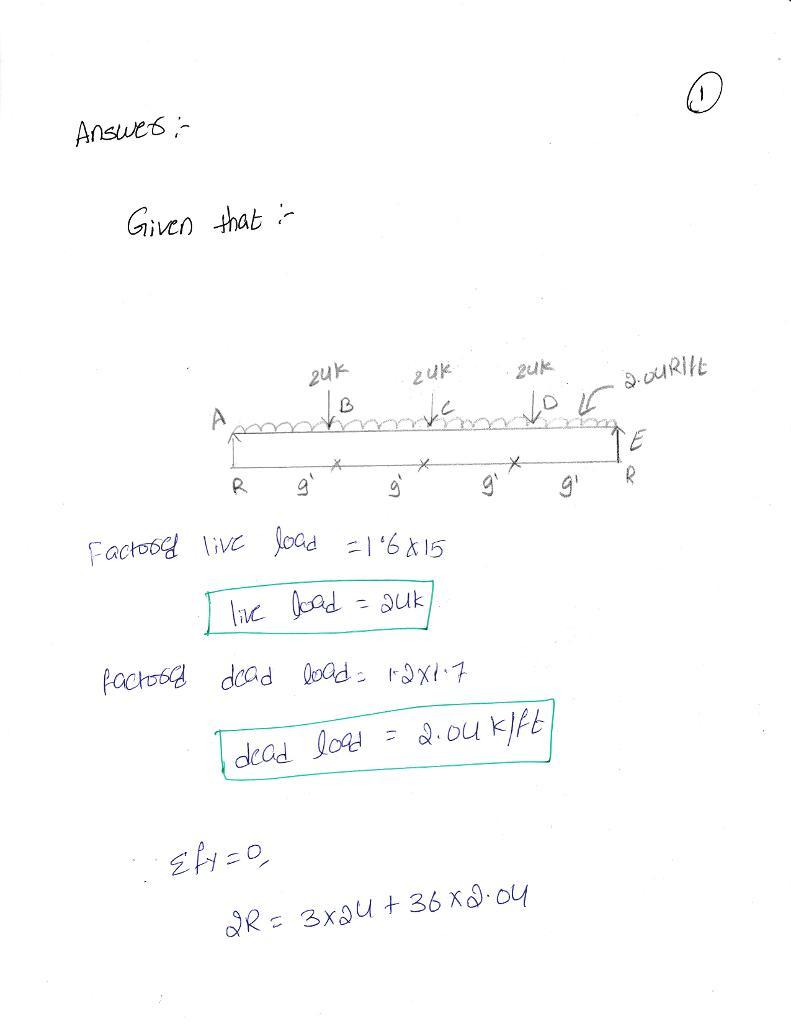 1
Answer :-
Given that :-
24k 24k 24k 2.04k/ft
A B C D E
R 9' 9' 9' 9' R
Factored live load = 1.6 x 15
live load = 24k
factored dead load = 1.2x1.7
dead load = 2.04 k/ft
∴ Σfy = 0,
2R = 3x24 + 36x2.04